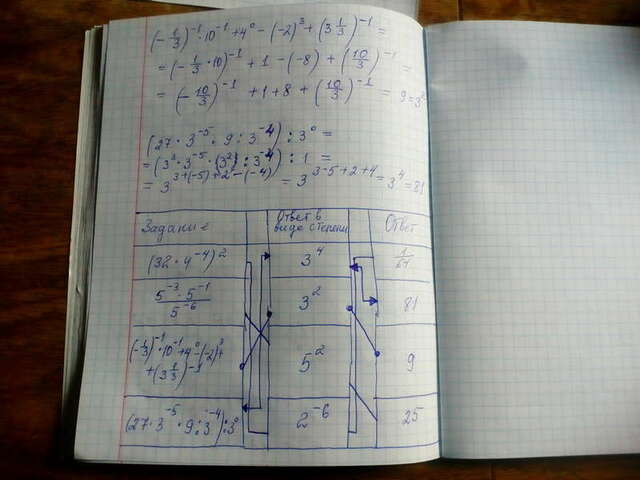 (-1/3)^-1 · 10^-1 + 4^0 - (-2)^3 + (3 1/3)^-1 =
= (-1/3 · 10)^-1 + 1 - (-8) + (10/3)^-1 =
= (-10/3)^-1 + 1 + 8 + (10/3)^-1 = 9 = 3^2
(27 · 3^-5 · 9 : 3^-4) : 3^0 =
= (3^3 · 3^-5 · (3^2) : 3^-4) : 1 =
= 3^3+(-5)+2-(-4) = 3^3-5+2+4 = 3^4 = 81
Задание Ответ в виде степени Ответ
(32 · 4^-4)^2 3^4 1/64
5^-3 · 5^-1 / 5^-6 3^2 81
(-1/3)^-1 · 10^-1 + 4^0 - (-2)^3 + 5^2 9
+ (3 1/3)^-1
(27 · 3^-5 · 9 : 3^-4) : 3^0 2^-6 25